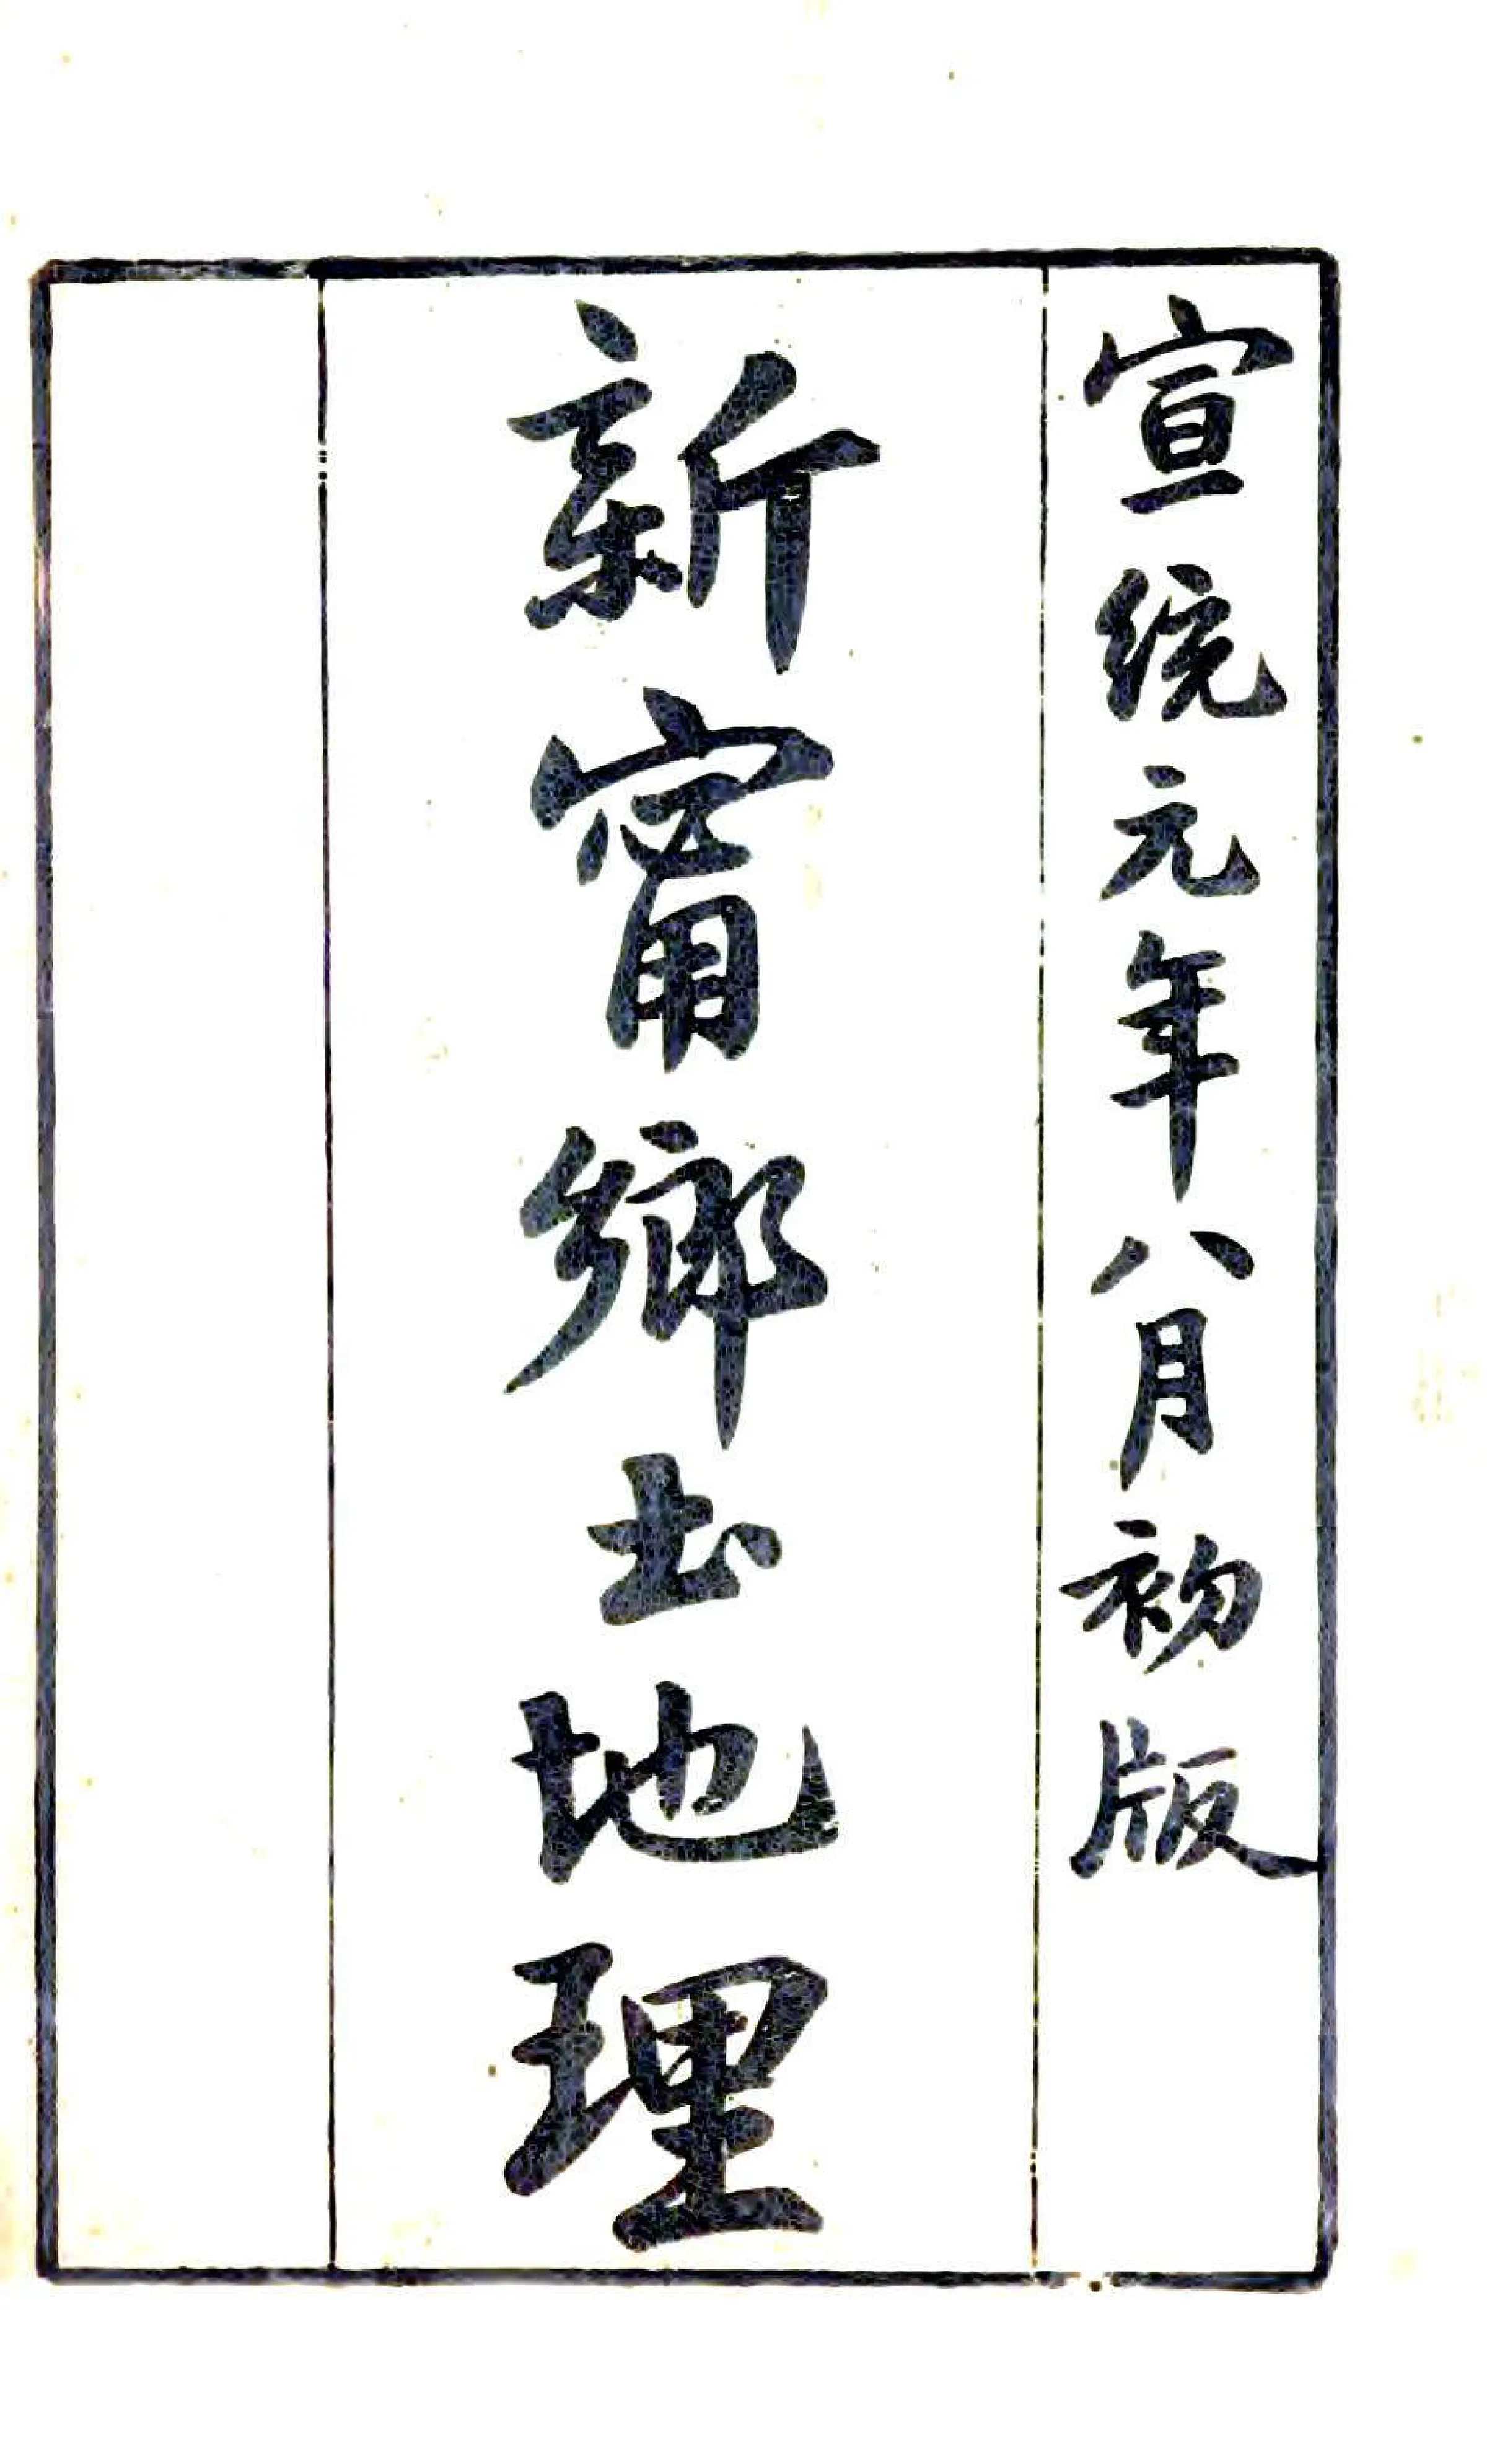 宣統元年八月初版
新甯鄉土地理